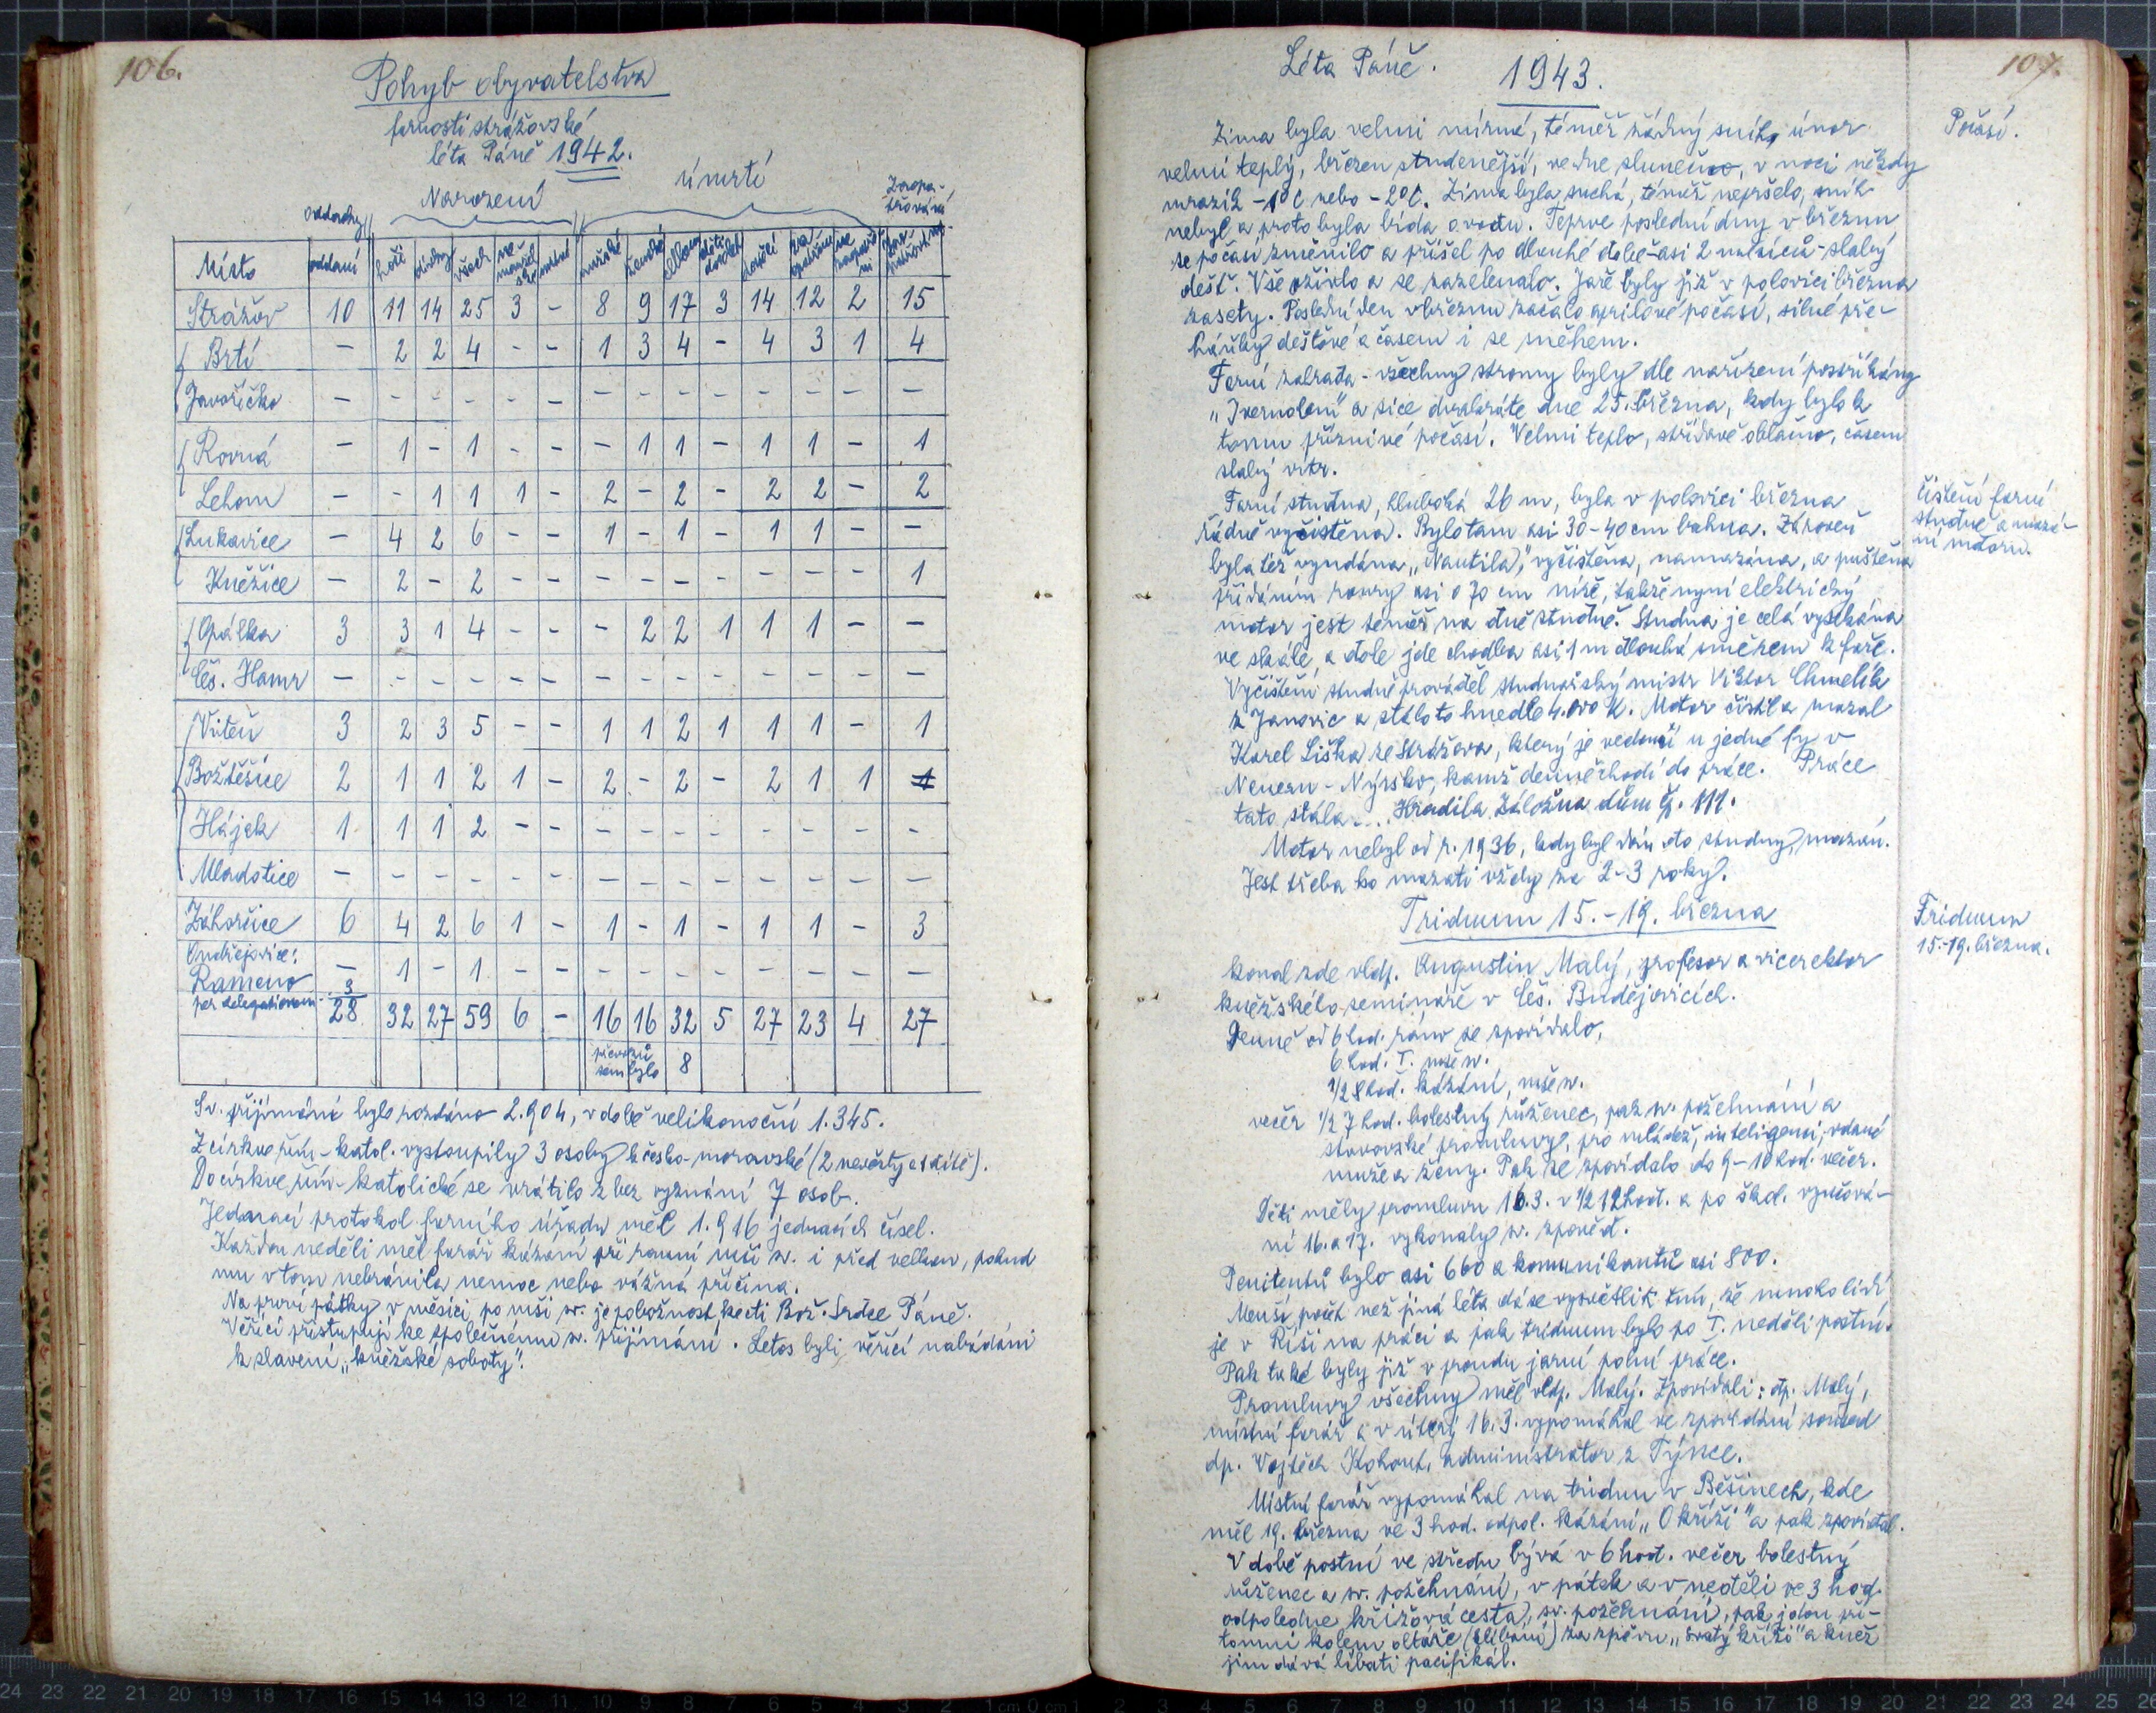 106.
Pohyb obyvatelstva
farnosti strážovské
léta Páně 1942.
oddavky Narození úmrtí Zaopatřování
Místo oddaní hoši dívky všech ne manžel ské mrtvé mužské ženské celkem děti do let dospělí zaopatřeni ne zaopatřeni
Strážov 10 11 14 25 3 - 8 9 17 3 14 12 2 15
Brtí - 2 2 4 - - 1 3 4 - 4 3 1 4
Javoříčko - - - - - - - - - - - - - -
Rovná - 1 - 1 - - - 1 1 - 1 1 - 1
Lehom - - 1 1 1 - 2 - 2 - 2 2 - 2
Lukavice - 4 2 6 - - 1 - 1 - 1 1 - -
Kněžice - 2 - 2 - - - - - - - - - 1
Opálka 3 3 1 4 - - - 2 2 1 1 1 - -
Čes. Hamr - - - - - - - - - - - - - -
Viteň 3 2 3 5 - - 1 1 2 1 1 1 - 1
Božtěšice 2 1 1 2 1 - 2 - 2 - 2 1 1 1
Hájek 1 1 1 2 - - - - - - - - - -
Mladotice - - - - - - - - - - - - - -
Záhorčice 6 4 2 6 1 - 1 - 1 - 1 1 - 3
Ondřejovice:
Rameno - 1 - 1 - - - - - - - - - -
per delegationem 3
28 32 27 59 6 - 16 16 32 5 27 23 4 27
převozů
sem bylo 8
Sv. přijímání bylo rozdáno 2.904, v době velikonoční 1.345.
Z církve řím-katol. vystoupily 3 osoby k česko-moravské (2 nevěsty a 1 dítě).
Do církve řím-katolické se vrátilo z bez vyznání 7 osob.
Jednací protokol farního úřadu měl 1.916 jednacích čísel.
Každou neděli měl farář kázání při ranní mši sv. i před velkou, pokud
mu v tom nebránila nemoc nebo vážná příčina.
Na první pátky v měsíci po mši sv. je pobožnost ke cti Bož. Srdce Páně.
Věřící přistupují ke společnému sv. přijímání. Letos byli věřící nabádáni
k slavení „kněžské soboty".
107.
Léta Páně. 1943.
Počasí.
Zima byla velmi mírná, téměř žádný sníh, únor
velmi teplý, březen studenější, ve dne slunečno, v noci někdy
mrazík -1°C nebo -2°C. Zima byla suchá, téměř nepršelo, sníh
nebyl a proto byla bída o vodu. Teprve poslední dny v březnu
se počasí změnilo a přišel po dlouhé době-asi 2 měsících-slabý
déšť. Vše ožilo a se zazelenalo. Jaře byly již v polovici března
zasety. Poslední den v březnu začalo aprílové počasí, silné pře-
háňky dešťové a časem i se sněhem.
Farní zahrada - všechny stromy byly dle nařízení postříkány
a sice dvakráte dne 25. března, kdy bylo k
tomu příznivé počasí. Velmi teplo, střídavě oblačno, časem
slabý vítr.
Čištění farní
studně a mazá-
ní motoru.
Farní studna, hluboká 26 m, byla v polovici března
řádně vyčištěna. Bylo tam asi 30-40 cm bahna. Zároveň
byla též vyndána „Nautila", vyčištěna, namazána, a puštěna
přidáním roury asi o 70 cm níže, takže nyní elektrický
motor jest téměř na dně studně. Studna je celá vysekána
ve skále, a dole jde chodba asi 1 m dlouhá směrem k faře.
Vyčištění studně prováděl studnařský mistr Viktor Chmelík
z Janovic a stálo to hnedle 4.000 K. Motor čistil a mazal
Karel Liška ze Strážova, který je vedoucí u jedné fy v
Neuern - Nýrsko, kamž denně chodí do práce. Práce
tato stála... Hradila Záložna dům č. 111.
Motor nebyl od r. 1936, kdy byl dán do studny, mazán.
Jest třeba ho mazati vždy za 2-3 roky.
Triduum 15.-19. března
Triduum
15.-19. března.
konal zde vldp. Augustin Malý, profesor a vicerektor
kněžského semináře v Čes. Budějovicích.
Denně od 6 hod. ráno se zpovídalo,
6 hod. I. mše sv.
1/2 8 hod. kázání, mše sv.
večer 1/2 7 hod. bolestný růženec, pak sv. požehnání a
stavovské promluvy, pro mládež, inteligenci, vdané
muže a ženy. Pak se zpovídalo do 9-10 hod. večer.
Děti měly promluvu 16.3. v 1/2 12 hod. a po škol. vyučová-
ní 16. a 17. vykonaly sv. zpověď.
Penitentů bylo asi 660 a komunikantů asi 800.
Menší počet než jiná léta dá se vysvětliti tím, že mnoho lidí
je v Říši na práci a pak triduum bylo po I. neděli postní.
Pak také byly již v proudu jarní polní práce.
Promluvy všechny měl vldp. Malý. Zpovídali: dp. Malý,
místní farář a v úterý 16.3. vypomáhal ve zpovídání soused
dp. Vojtěch Kohout, administrator z Týnce.
Místní farář vypomáhal na triduu v Běšinech, kde
měl 19. března ve 3 hod. odpol. kázání „O kříži" a pak zpovídal.
V době postní ve středu bývá v 6 hod. večer bolestný
růženec a sv. požehnání, v pátek a v neděli ve 3 hod.
odpoledne křížová cesta, sv. požehnání, pak jdou pří-
tomní kolem oltáře (líbání) za zpěvu „Svatý kříži" a kněz
jim dává líbati pacifikál.